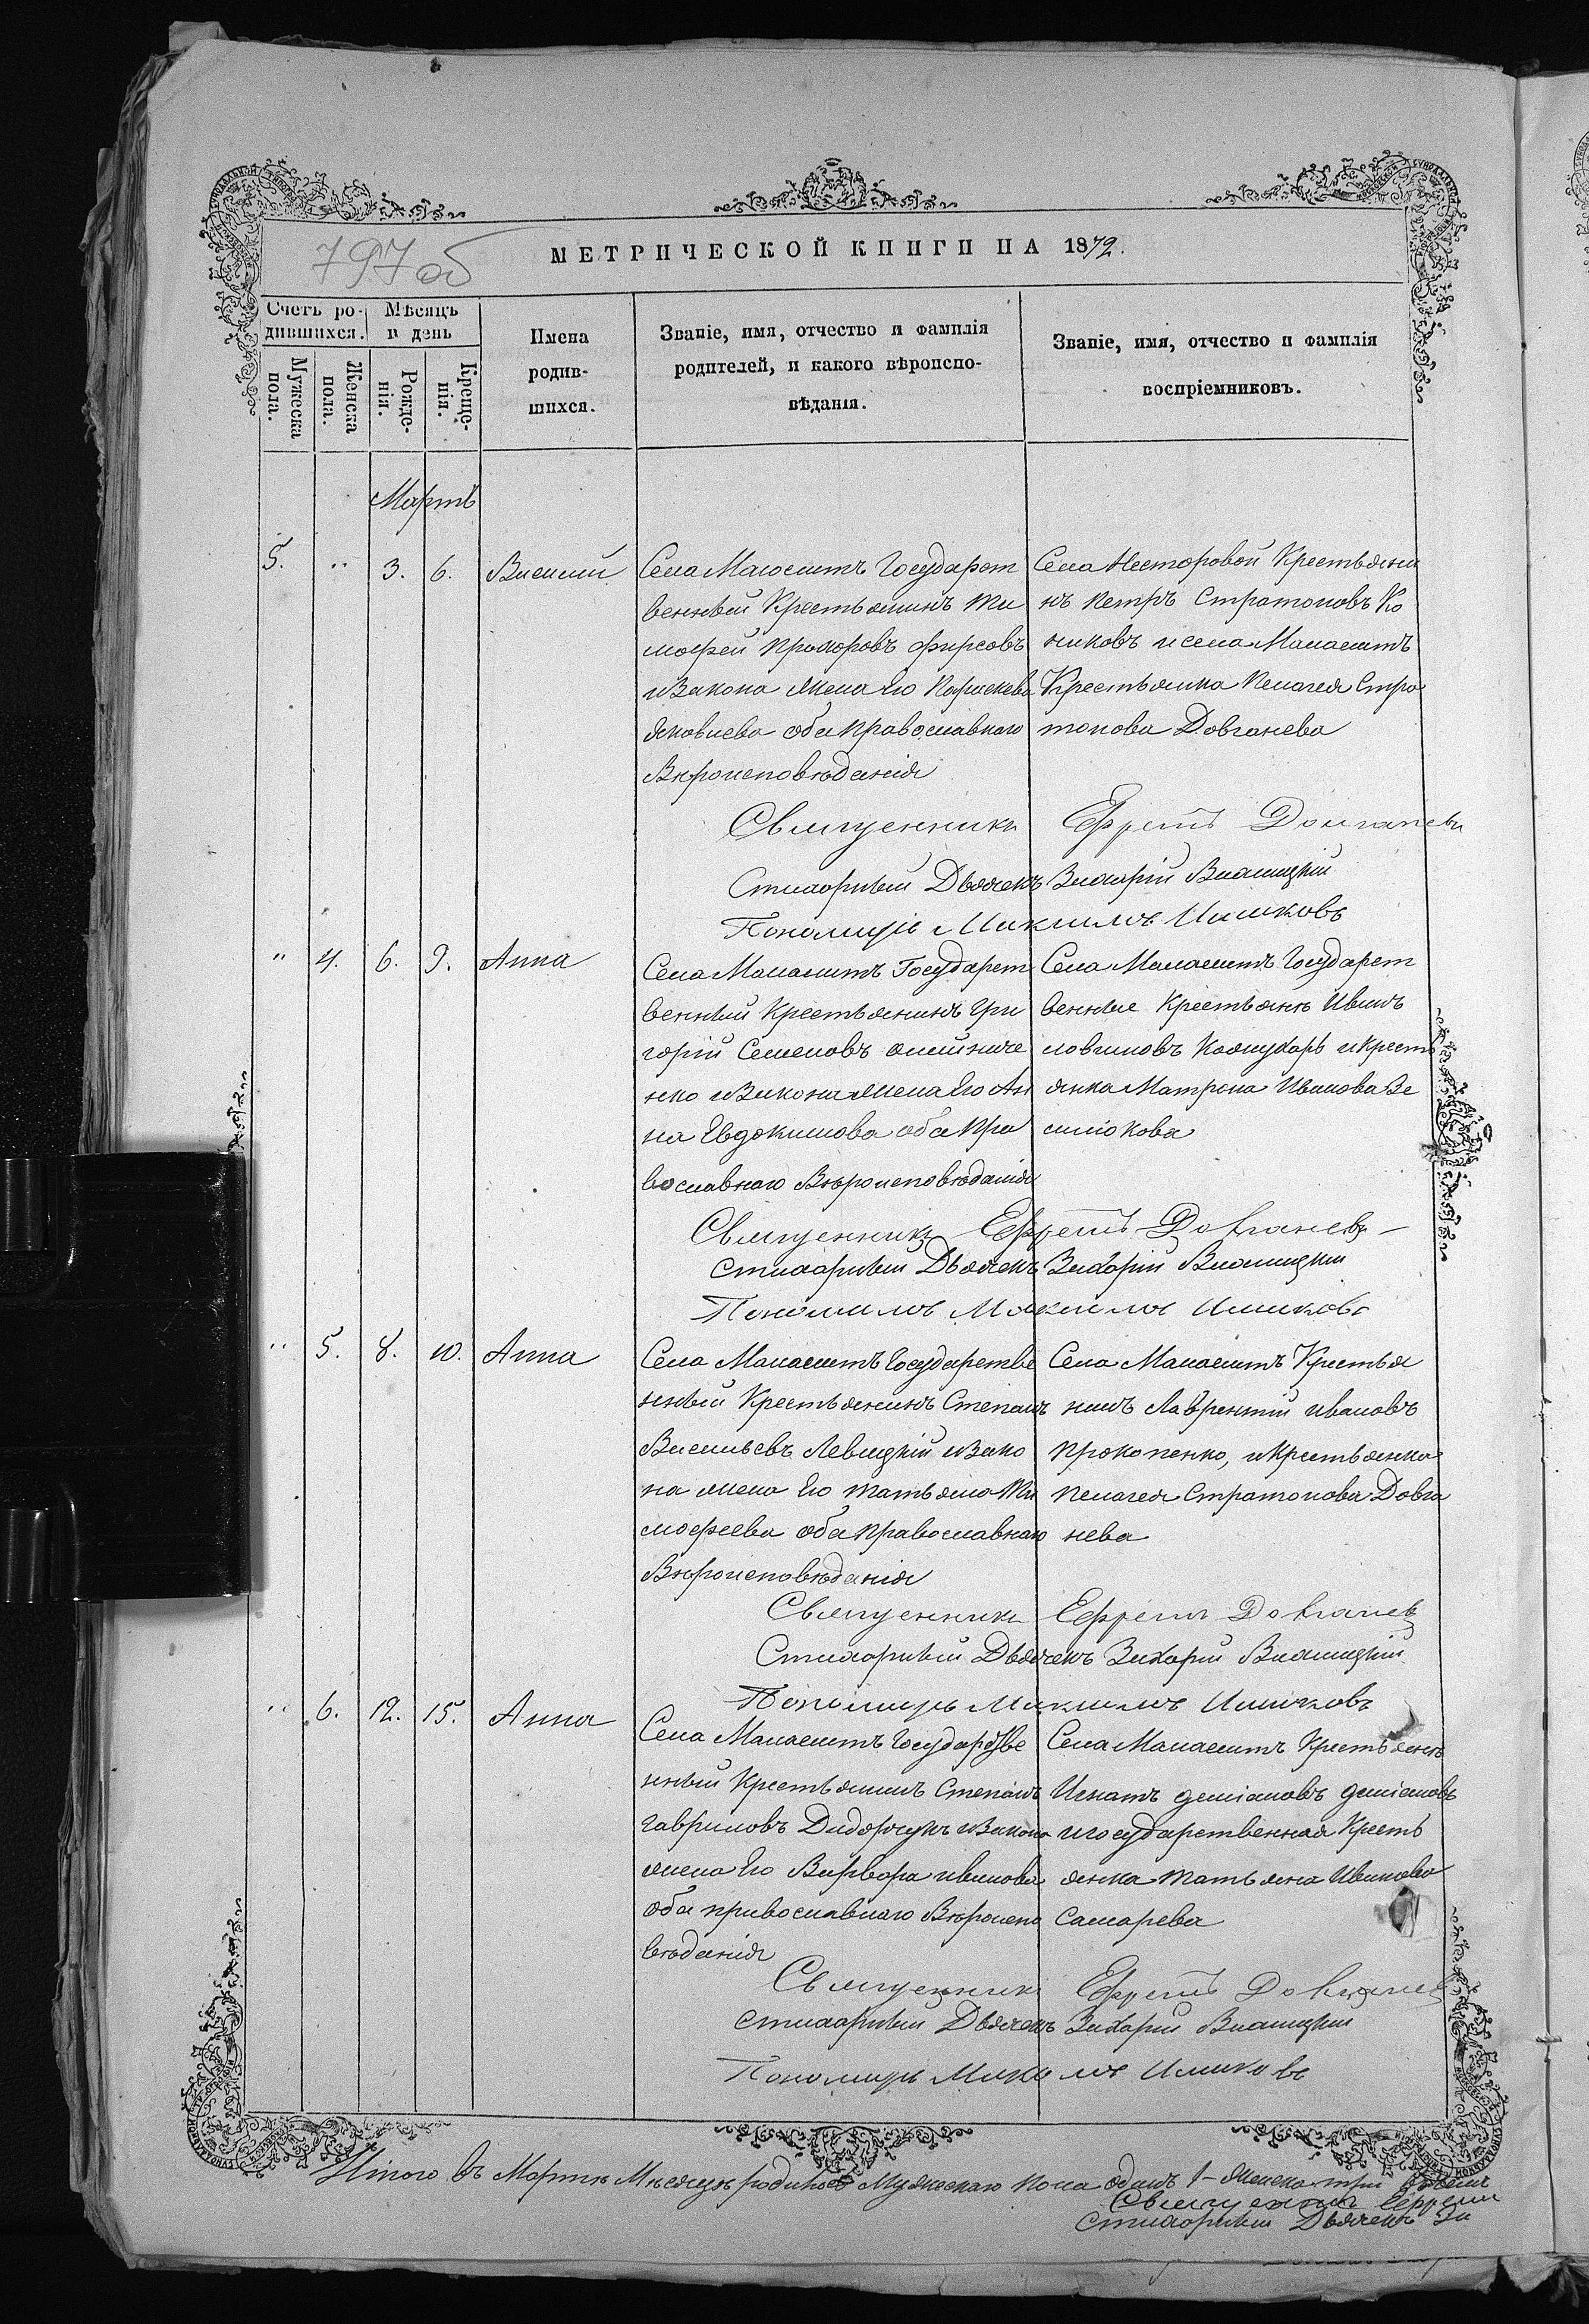 797 об
МЕТРИЧЕСКОЙ КНИГИ НА 1872.
Счетъ ро-
дившихся.
Мѣсяцъ
и день
Имена
родив-
шихся.
Званіе, имя, отчество и фамилія
родителей, и какого вѣроиспо-
вѣданія.
Званіе, имя, отчество и фамилія
воспріемниковъ.
Мужеска
пола.
Женска
пола.
Рожде-
нія.
Креще-
нія.
Мартъ
5. " 3. 6. Василий
Села Манаешть Государст
венный Крестьянинъ Ти
мофей Прохоровъ Фирсовъ
и Закона жена Его Параскева
Яковлева оба православнаго
Вѣроисповѣданія
Села Несторовой Крестьяни
нъ Петръ Стратоновъ Ко
никовъ и села Манаештъ
Крестьянка Пелагея Стра
тонова Довганева
Священникъ Ефремъ Довганевъ
Стихарный Дьячекъ Захарій
Пономарь
" 4. 6. 9. Анна
Села Манаештъ Государст
венный Крестьянинъ Гри
горій Семеновъ Олейниче
нко и Закона жена Его Ан
на Евдокимова оба Пра
вославнаго Вѣроисповѣданія
Села Манаештъ Государст
венные Крестьяне Иванъ
и крестъ
янка Матрона Иванова Ве
Священникъ Ефремъ Довганевъ
Стихарный Дьячекъ Захарій
" 5. 8. 10. Анна
Села Манаештъ Государстве
нный Крестьянинъ Степанъ
Васильевъ Левицкій и Зако
на жена Его Татьяна Ти
мофеева оба Православнаго
Вѣроисповѣданія
Села Манаештъ Крестья
нинъ Лаврентій Ивановъ
Прокопенко, и Крестьянка
Пелагея Стратонова Довга
нева
Священникъ Ефремъ Довганевъ
Стихарный Дьячекъ Захарій
Пономарь
" 6. 12. 15. Анна
Села Манаештъ Государстве
нный Крестьянинъ Степанъ
Гавриловъ и Закона
жена Его Варвара Иванова
оба православнаго Вѣроиспо
вѣданія
Села Манаештъ Крестьяне
Игнатъ Деміановъ Деміановъ
и государственная Кресть
янка Татьяна Иванова
Самарева
Священникъ Ефремъ Довганевъ
Стихарный Дьячекъ Захарій
Пономарь
Итого въ Мартѣ Мѣсяцѣ родилось Мужескаго пола одинъ 1 – женска три
Священникъ Ефремъ
Стихарный Дьячекъ За